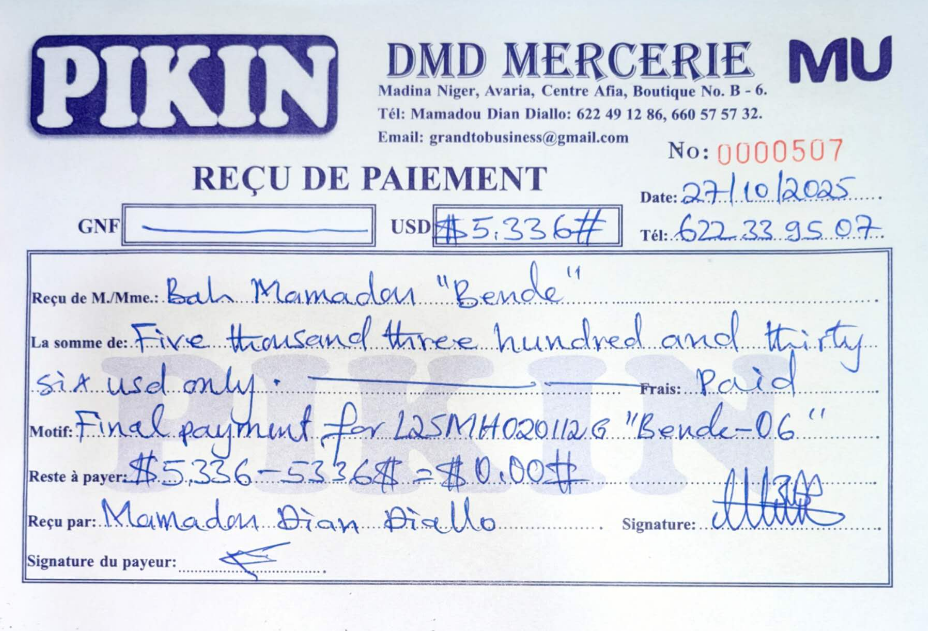 PIKIN
DMD MERCERIE
MU
Madina Niger, Avaria, Centre Afia, Boutique No. B - 6.
Tél: Mamadou Dian Diallo: 622 49 12 86, 660 57 57 32.
Email: grandtobusiness@gmail.com
No: 0000507
REÇU DE PAIEMENT
Date: 27/10/2025
GNF
USD $5,336#
Tél: 622 33 95 07
Reçu de M./Mme.: Bah Mamadou "Bende"
La somme de: Five thousand three hundred and thirty
six usd only. Frais: Paid
Motif: Final payment for L25MH020112G "Bende-06"
Reste à payer: $5,336-5336$ = $0.00#
Reçu par: Mamadou Dian Diallo Signature:
Signature du payeur:
PIKIN